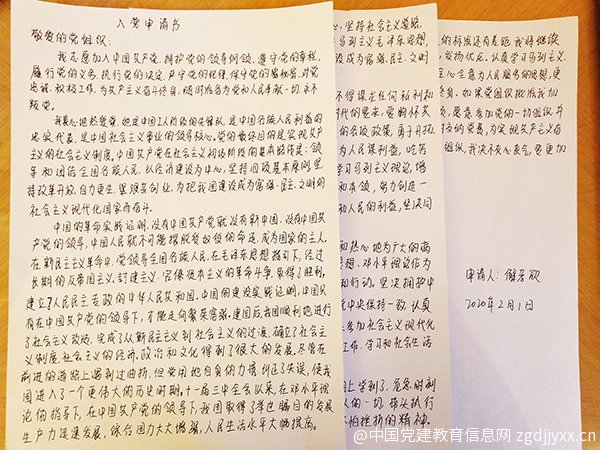 入党申请书
敬爱的党组织:
我志愿加入中国共产党,拥护党的纲领,遵守党的章程,
履行党员义务,执行党的决定,严守党的纪律,保守党的秘密,对党
忠诚,积极工作,为共产主义奋斗终身,随时准备为党和人民牺牲一切,永不
叛党。
我衷心地热爱党,她是中国工人阶级的先锋队,是中国各族人民利益的
忠实代表,是中国社会主义事业的领导核心。党的最终目的是实现共产
主义的社会主义制度。中国共产党在社会主义初级阶段的基本路线是:领
导和团结全国各族人民,以经济建设为中心,坚持四项基本原则,坚
持改革开放,自力更生,艰难创业,为把我国建设成为富强、民主、文明的
社会主义现代化国家而奋斗。
中国的革命实践证明,没有中国共产党就没有新中国,没有中国共
产党的领导,中国人民就不可能摆脱受奴役的命运,成为国家的主人。
在新民主主义革命中,党领导全国各族人民,在毛泽东思想指引下,经过
长期的反帝国主义、封建主义、官僚资本主义的革命斗争,取得了胜利,
建立了人民民主专政的中华人民共和国。中国的建设实践证明,中国只
有在中国共产党的领导下,才能走向繁荣富强。建国后,我国顺利地进行
了社会主义改造,完成了从新民主主义到社会主义的过渡,确立了社会主
义制度,社会主义的经济、政治和文化得到了很大的发展。尽管在
前进的道路上遇到过曲折,但党用她自身的力量纠正了失误,使我
国进入了一个更伟大的历史时期。十一届三中全会以来,在邓小平理
论的指导下,在中国共产党的领导下,我国取得了举世瞩目的发展,
生产力迅速发展,综合国力大大增强,人民生活水平大幅提高。
坚持社会主义道路,
马列主义毛泽东思想,
设成为富强、民主、文明
不得谋求任何私利和
为人民谋利益,吃苦
学习马列主义理论,增
和本领,努力创造一
和人民的利益,坚决同
和热心地为广大的
思想、邓小平理论作为
和行动。坚决拥护中
党中央保持一致,认真
参加社会主义现代化
工作、学习和社会生活
人的一切,带头执行
怕挫折的精神,
的标准还有差距,我将继续
发扬优点,认真学习马列主义、
身。如果党组织批准我加
愿意参加党的一切组织,并
组织,我决不灰心丧气,会更加
申请人:
2020年2月1日
@中国党建教育信息网 zgdjjyxx.cn